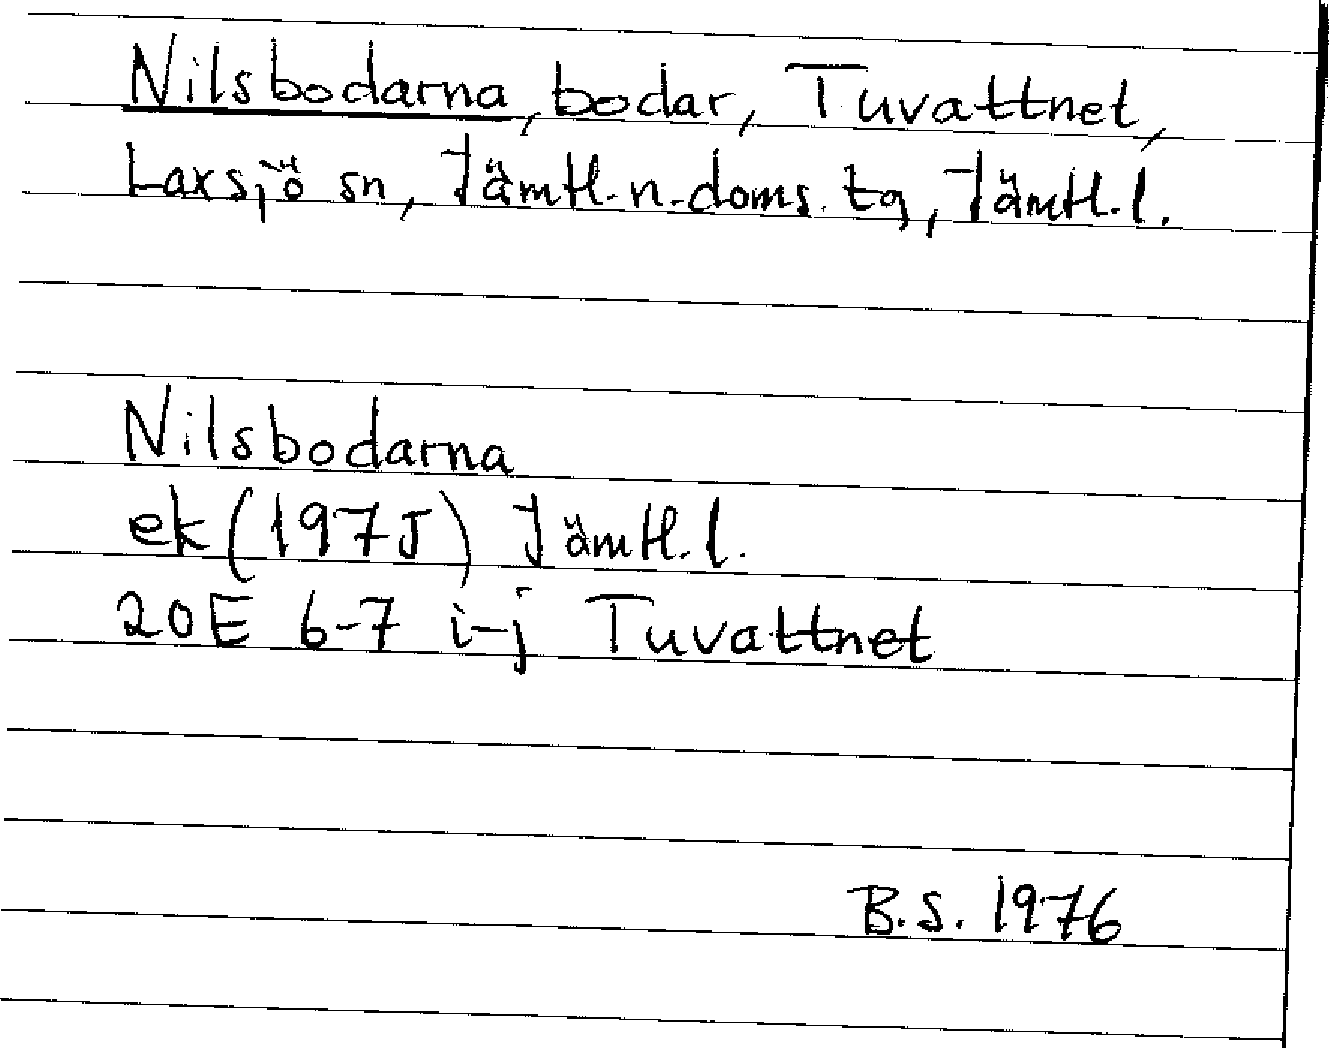 Nilsbodarna, bodar, Tuvattnet,
Laxsjö sn, Jämtl. n. doms. tg, Jämtl. l.
Nilsbodarna
ek (1975) Jämtl. l.
20E 6-7 i-j Tuvattnet
B.S. 1976